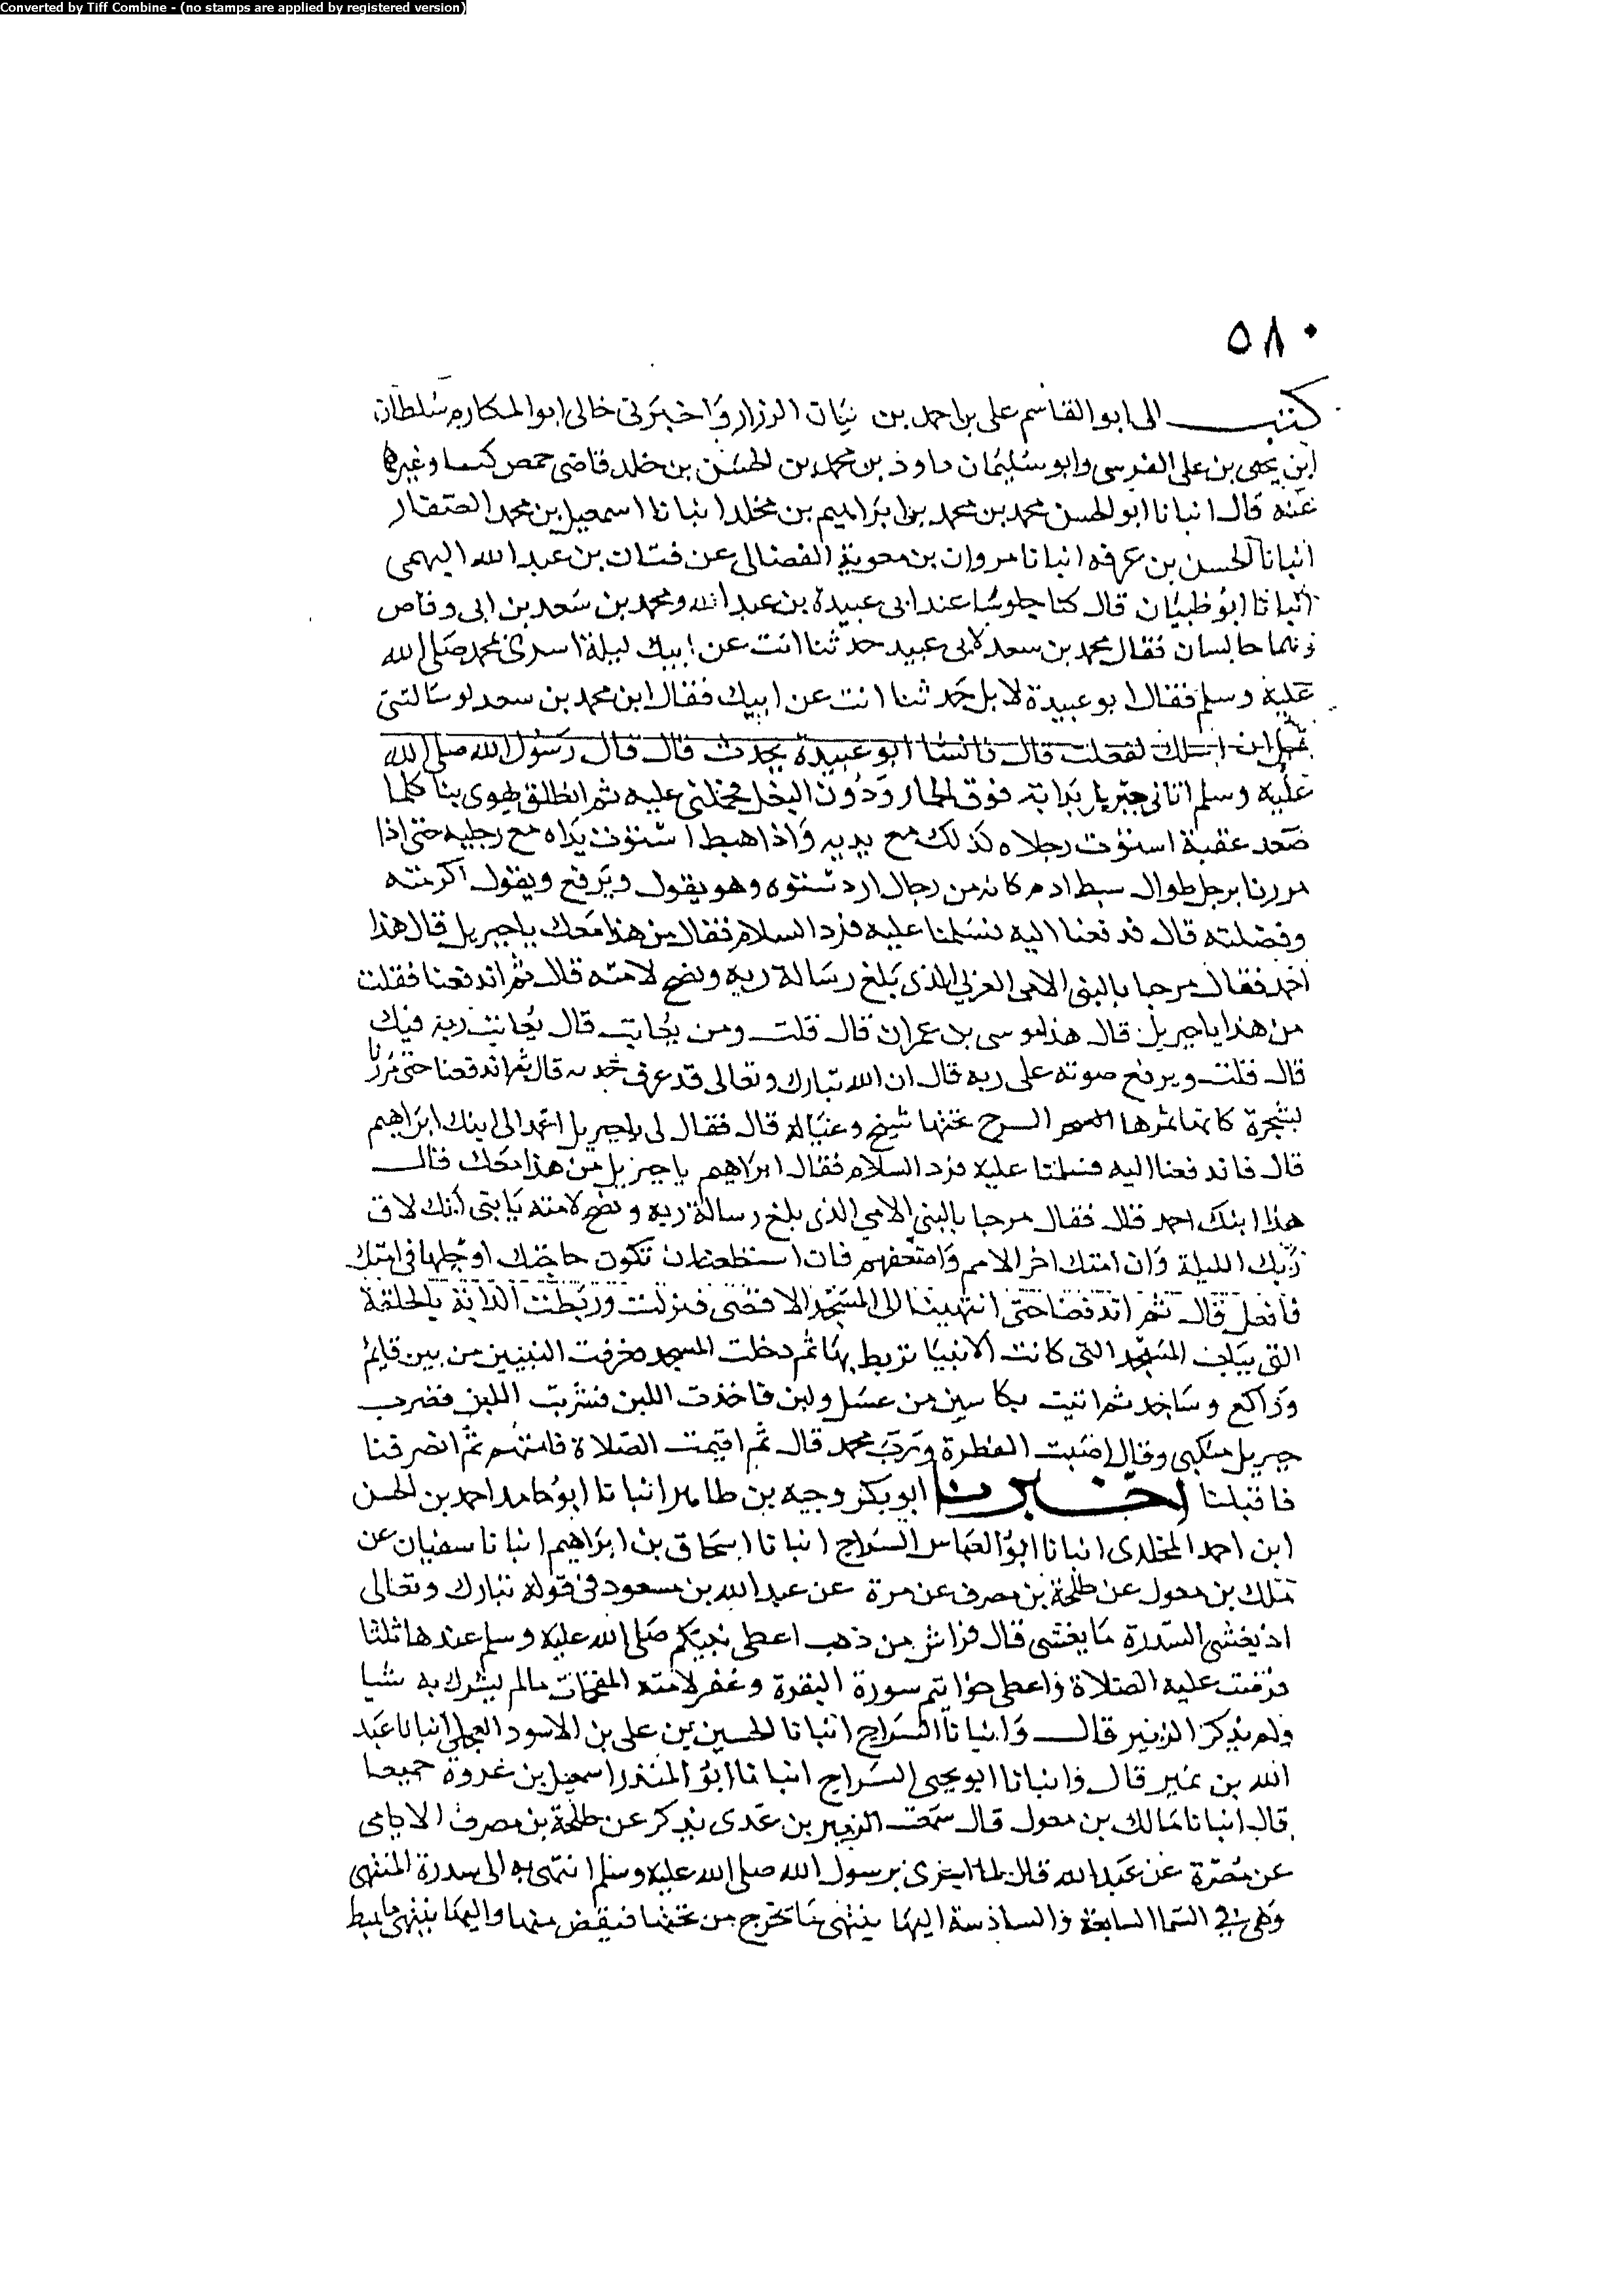 Converted by Tiff Combine - (no stamps are applied by registered version)
٥٨٠
كتب الى ابو القاسم على بن احمد بن بيان الرزاز واخبرنى خالى ابو المكارم سلطان
ابن يحيى بن على القرسى وابو سليمان داود بن محمد بن الحسن بن خلد قاضى حمص وغيرها
عنه قال انبانا ابو الحسن محمد بن محمد بن ابراهيم بن مخلد انبانا اسمعيل بن محمد الصفار
انبانا الحسن بن عرفه انبانا مروان بن معوية الفزارى عن قنان بن عبد الله النهمى
انبانا ابو ظبيان قال كنا جلوسا عند ابى عبيدة بن عبد الله ومحمد بن سعد بن ابى وقاص
وهما جالسان فقال محمد بن سعد لابى عبيد حدثنا انت عن ابيك ليلة اسرى بمحمد صلى الله
عليه وسلم فقال ابو عبيدة لا بل حدثنا انت عن ابيك فقال ابن محمد بن سعد لو سالتنى
قبل ان اسلك لفعلت قال فانشا ابو عبيدة يحدث قال قال رسول الله صلى الله
عليه وسلم اتانى جبريل بدابة فوق الحمار ودون البغل فحملنى عليه ثم انطلق يهوى بنا كلما
صعد عقبة استوت رجلاه كذلك مع يديه واذا هبط استوت يداه مع رجليه حتى اذا
مررنا برجل طوال سبط ادم كانه من رجال ازد شنوه وهو يقول ويرفع ويقول اكرمته
وفضلته قال فدفعنا اليه فسلمنا عليه فرد السلام فقال من هذا معك يا جبريل قال هذا
احمد فقال مرحبا بالنبى الامى العربى الذى بلغ رسالة ربه ونصح لامته قال ثم اندفعنا فقلت
من هذا يا جبريل قال هذا موسى بن عمران قال قلت ومن يعاتب قال يعاتب ربه فيك
قال قلت ويرفع صوته على ربه قال ان الله تبارك وتعالى قد عرف قال ثم اندفعنا حتى مررنا
بشجرة كانما ثمرها السرح تحتها شيخ وعياله قال فقال لى يا جبريل اعمد الى ابيك ابراهيم
قال فاندفعنا اليه فسلمنا عليه فرد السلام فقال ابراهيم يا جبريل من هذا معك قال
هذا ابنك احمد قال فقال مرحبا بالنبى الامى الذى بلغ رسالة ربه ونصح لامته يا بنى انك لاق
ربك الليلة وان امتك اخر الامم واضعفهم فان استطعت ان تكون حاجتك او جلها فى امتك
فافعل قال ثم اندفعنا حتى انتهينا الى المسجد الاقصى فنزلت وربطت الدابة بالحلقة
التى بباب المسجد التى كانت الانبيا تربط بها ثم دخلت المسجد فعرفت النبيين من بين قايم
وراكع وساجد ثم اتيت بكاسين من عسل ولبن فاخذت اللبن فشربت اللبن فضرب
جبريل منكبى وقال اصبت الفطرة ورب محمد قال ثم اقيمت الصلاة فاممتهم ثم انصرفنا
فاقبلنا اخبرنا ابو بكر وجيه بن طاهر انبانا ابو حامد احمد بن الحسن
ابن احمد المخلدى انبانا ابو العباس السراج انبانا اسحاق بن ابراهيم انبانا سفيان عن
ملك بن معول عن طلحة بن مصرف عن مرة عن عبد الله بن مسعود فى قوله تبارك وتعالى
اذ يغشى السدرة ما يغشى قال فراش من ذهب اعطى نبيكم صلى الله عليه وسلم عندها ثلثا
فرضت عليه الصلاة واعطى خواتيم سورة البقرة وغفر لامته المقحمات ما لم يشرك به شيا
ولم يذكر الزبير قال وانبانا السراج انبانا الحسين بن على بن الاسود العجلى انبانا عبد
الله بن نمير قال وانبانا ابو يحيى السراج انبانا ابو المنذر اسمعيل بن عروة جميعا
قال انبانا مالك بن معول قال سمعت الزبير بن عدى يذكر عن طلحة بن مصرف الايامى
عن مرة عن عبد الله قال لما اسرى برسول الله صلى الله عليه وسلم انتهى به الى سدرة المنتهى
وهى فى السما السابعة والسادسة اليها ينتهى ما يخرج من تحتها فيقبض منها واليها ينتهى ما يهبط